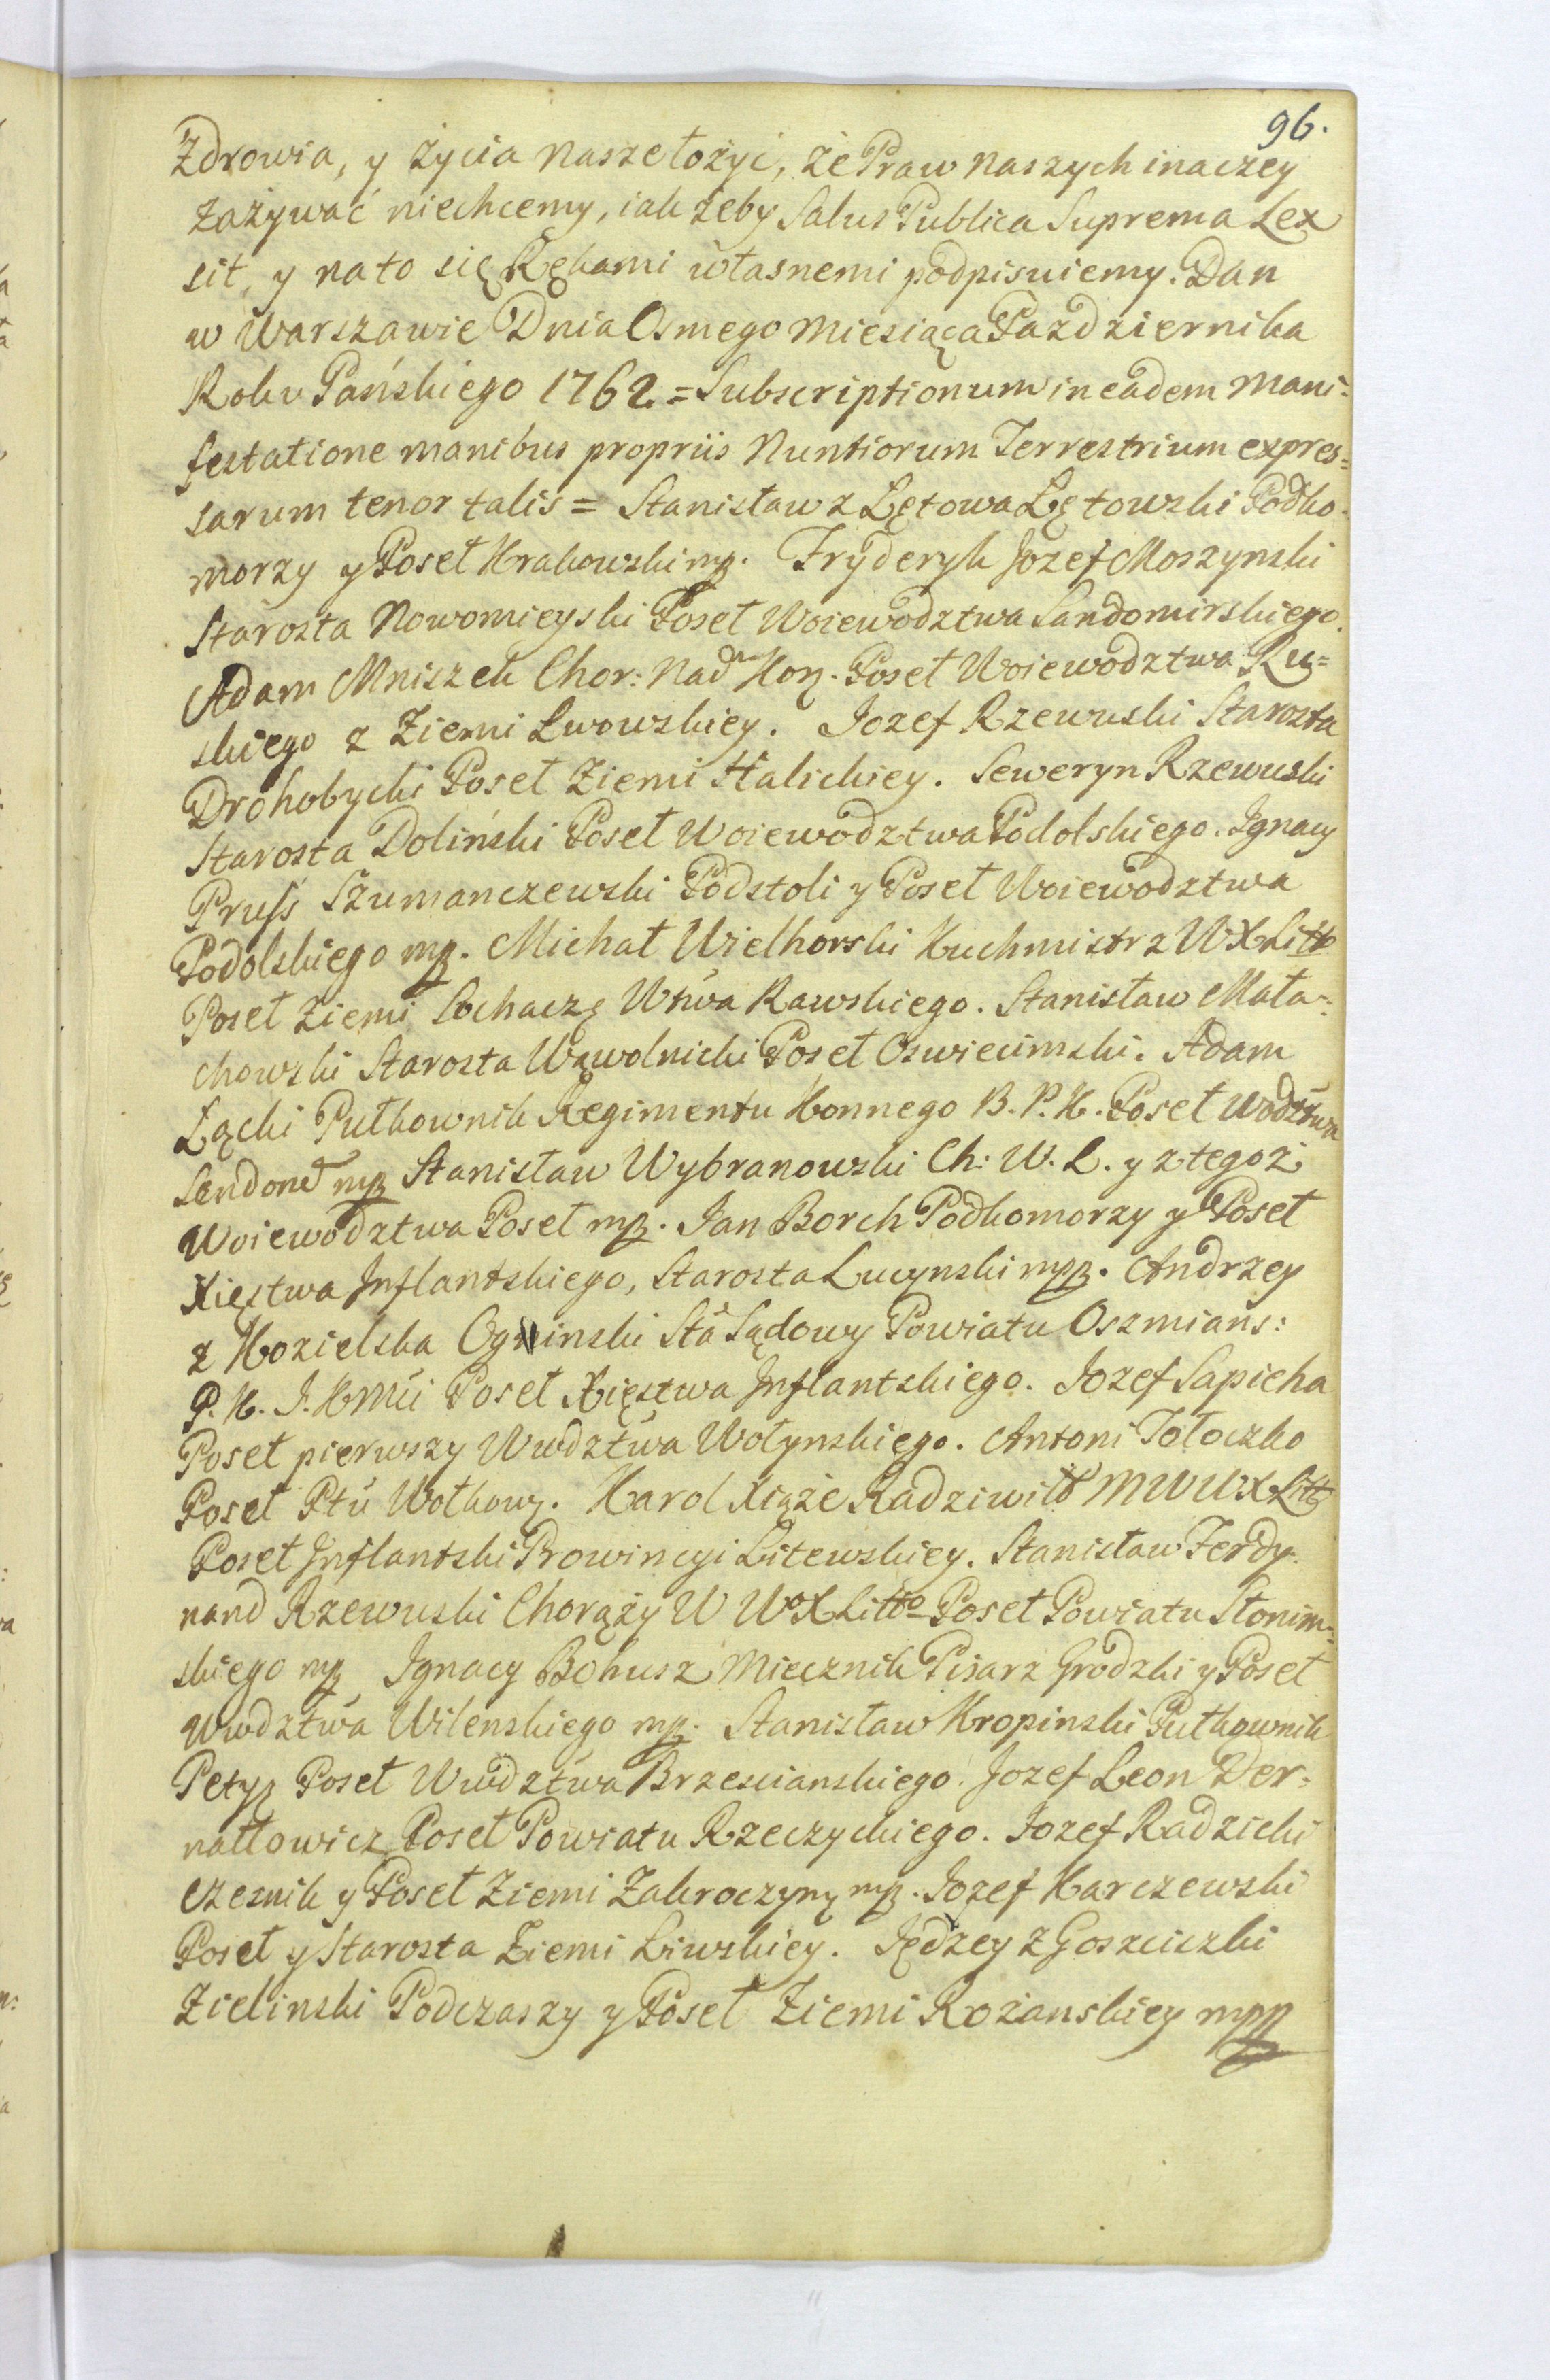 96.
Zdrowia, y życia nasze łożyć, że Praw naszych inaczey
zażywać niechcemy, iak żeby Salus Publica Suprema Lex
sit, y na to się Rękami własnemi podpisuiemy. Dan
w Warszawie Dnia Osmego Miesiąca Pazdziernika
Roku Pańskiego 1762 = Subscriptionum in eadem Mani=
festatione manibus propriis Nuntiorum Terrestrium expres=
sarum tenor talis = Stanisław z Lętowa Lętowski Podko-
morzy y Poseł Krakowski mp. Fryderyk Jozef Moszynski
Starosta Nowomieyski Poseł Woiewodztwa Sandomirskiego.
Adam Mniszek Chor: Nad Kor. Poseł Woiewodztwa Ru=
skiego z Ziemi Lwowskiey. Jozef Rzewuski Starosta
Drohobycki Poseł Ziemi Halickiey. Seweryn Rzewuski
Starosta Doliński Poseł Woiewodztwa Podolskiego. Ignacy
Pruss Szumanczewski Podstoli y Poseł Woiewodztwa
Podolskiego mp. Michał Wielhorski Kuchmistrz W X Litto
Poseł Ziemi Sochacz Wtwa Rawskiego. Stanisław Mała=
chowski Starosta Wąwolnicki Poseł Oswiecimski. Adam
Łącki Pułkownik Regimentu Konnego B. P. K. Poseł Wodztwa
Sendom mp Stanisław Wybranowski Ch: W. L. y z tegoż
Woiewodztwa Poseł mp. Jan Borch Podkomorzy y Poseł
Xięstwa Inflantskiego, Starosta Lucynski mpp. Andrzey
z Kozielska Oginski Sta Sądowy Powiatu Oszmians:
P. K. J. KMci Poseł Xięstwa Inflantskiego. Jozef Sapieha
Poseł pierwszy Wwdztwa Wołynskiego. Antoni Tołoczko
Poseł Ptu Wołkow. Karol Xiąże Radziwiłł M W W X Litt
Poseł Inflantski Prowincyi Litewskiey. Stanisław Ferdy-
nand Rzewuski Chorąży W Wo X Litto Poseł Powiatu Słonim=
skiego mp Ignacy Bohusz Miecznik Pisarz Grodzki y Poseł
Wwdztwa Wilenskiego mp. Stanisław Kropinski Pułkownik
Petyh Poseł Wwdztwa Brzescianskiego. Jozef Leon Der=
nałłowicz Poseł Powiatu Rzeczyckiego. Jozef Radzicki
Czesnik y Poseł Ziemi Zakroczyn mp. Jozef Karczewski
Poseł y Starosta Ziemi Liwskiey. Jędzey z Goszciczki
Zielinski Podczaszy y Poseł Ziemi Rożanskiey mpp